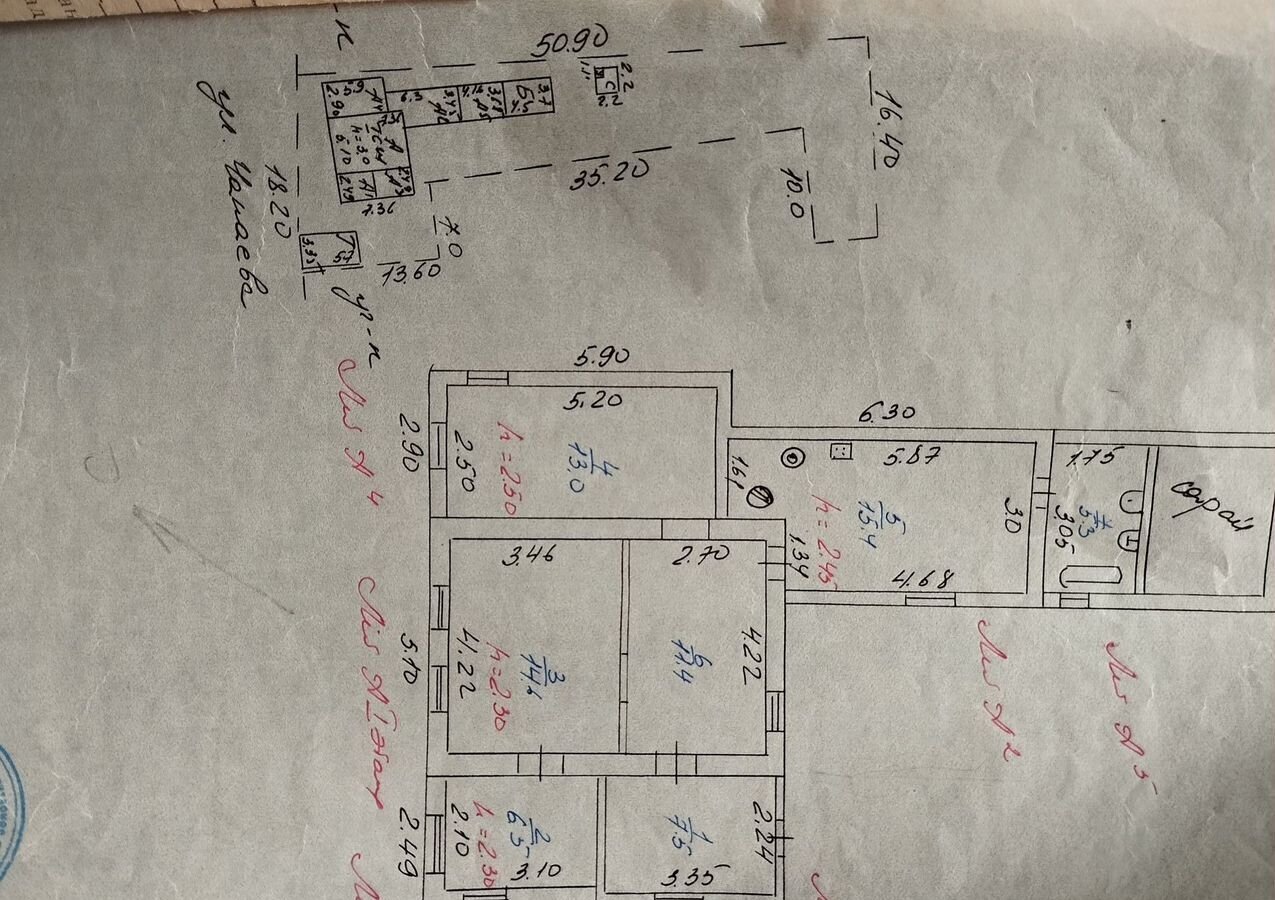 50.90
16.40
10.0
35.20
7.0
13.60
18.20
ул. Чапаева
2.2
2.2
5.10
h=3.0
7.36
3.7
уг-п
5.90
5.20
2.90
2.50
h=2.50
4
13.0
Лит А4
6.30
5.87
1.61
5
15.4
h=2.45
3.0
1.34
4.68
1.75
3.05
7
5.3
сарай
Лит А2
3.46
2.70
5.10
4.22
3
14.6
h=2.30
6
11.4
4.22
Лит А I этаж
2.49
2.10
2
6.5
h=2.30
3.10
1
7.5
2.24
3.35